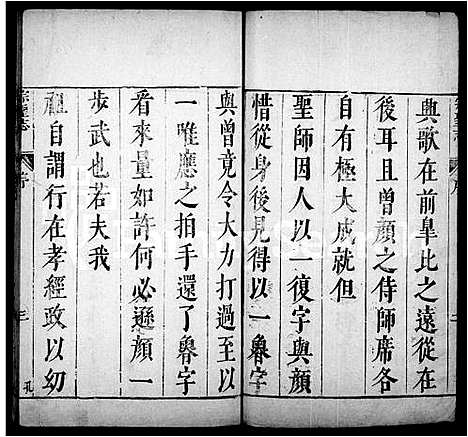 與歌在前皐比之遠從在
後耳且曾顔之侍師席各
自有極大成就但
聖師因人以一復字與顔
惜從身後見得以一魯字
與曾竟令大力打過至以
一唯應之拍手還了魯字
看來量如許何必遜顔一
步武也若夫我
祖自謂行在孝經政以幼
序
三
孔